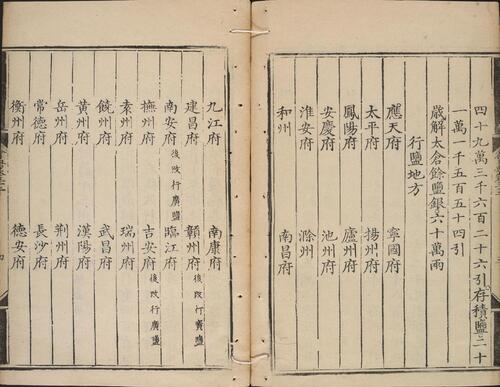 四十九萬三千六百二十六引存積鹽二十
一萬一千五百五十四引
歲解太倉餘鹽銀六十萬兩
行鹽地方
應天府 寧國府
太平府 揚州府
鳳陽府 廬州府
安慶府 池州府
淮安府 滁州
和州 南昌府
九江府 南康府
建昌府 贛州府 後改行廣鹽
南安府 後改行廣鹽 臨江府
撫州府 吉安府 後改行廣鹽
袁州府 瑞州府
饒州府 武昌府
黃州府 漢陽府
岳州府 荆州府
常德府 長沙府
衡州府 德安府